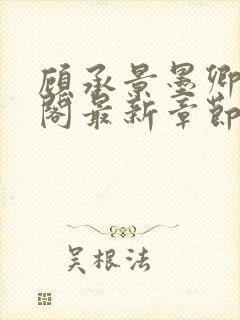 顾承景墨卿
阁最新章節
吴根法